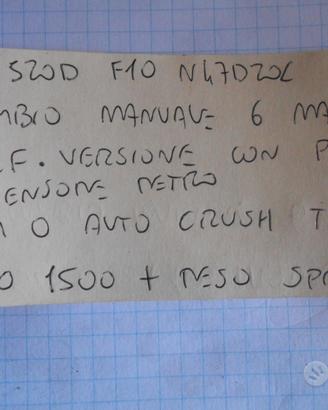 520D F10 N47D20C
MBIO MANUALE 6 MA
F. VERSIONE CON P
ENSORE RETRO
O AUTO CRUSH T
O 1500 + RESO SPE